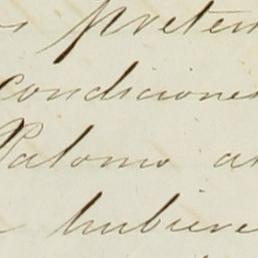 s preten
condiciones
Palomo al
hubiere